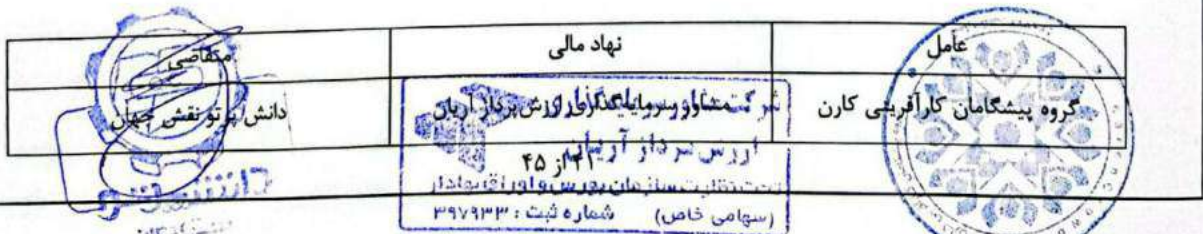 عامل نهاد مالی متقاضی
گروه پیشگامان کارآفرینی کارن مشاور سرمایه‌گذاری ارزش پرداز آریان دانش پرتو نقش جهان
از ۴۵
شرکت مشاور سرمایه‌گذاری
ارزش پرداز آریان
تحت نظارت سازمان بورس و اوراق بهادار
(سهامی خاص) شماره ثبت : ۳۹۷۹۳۳